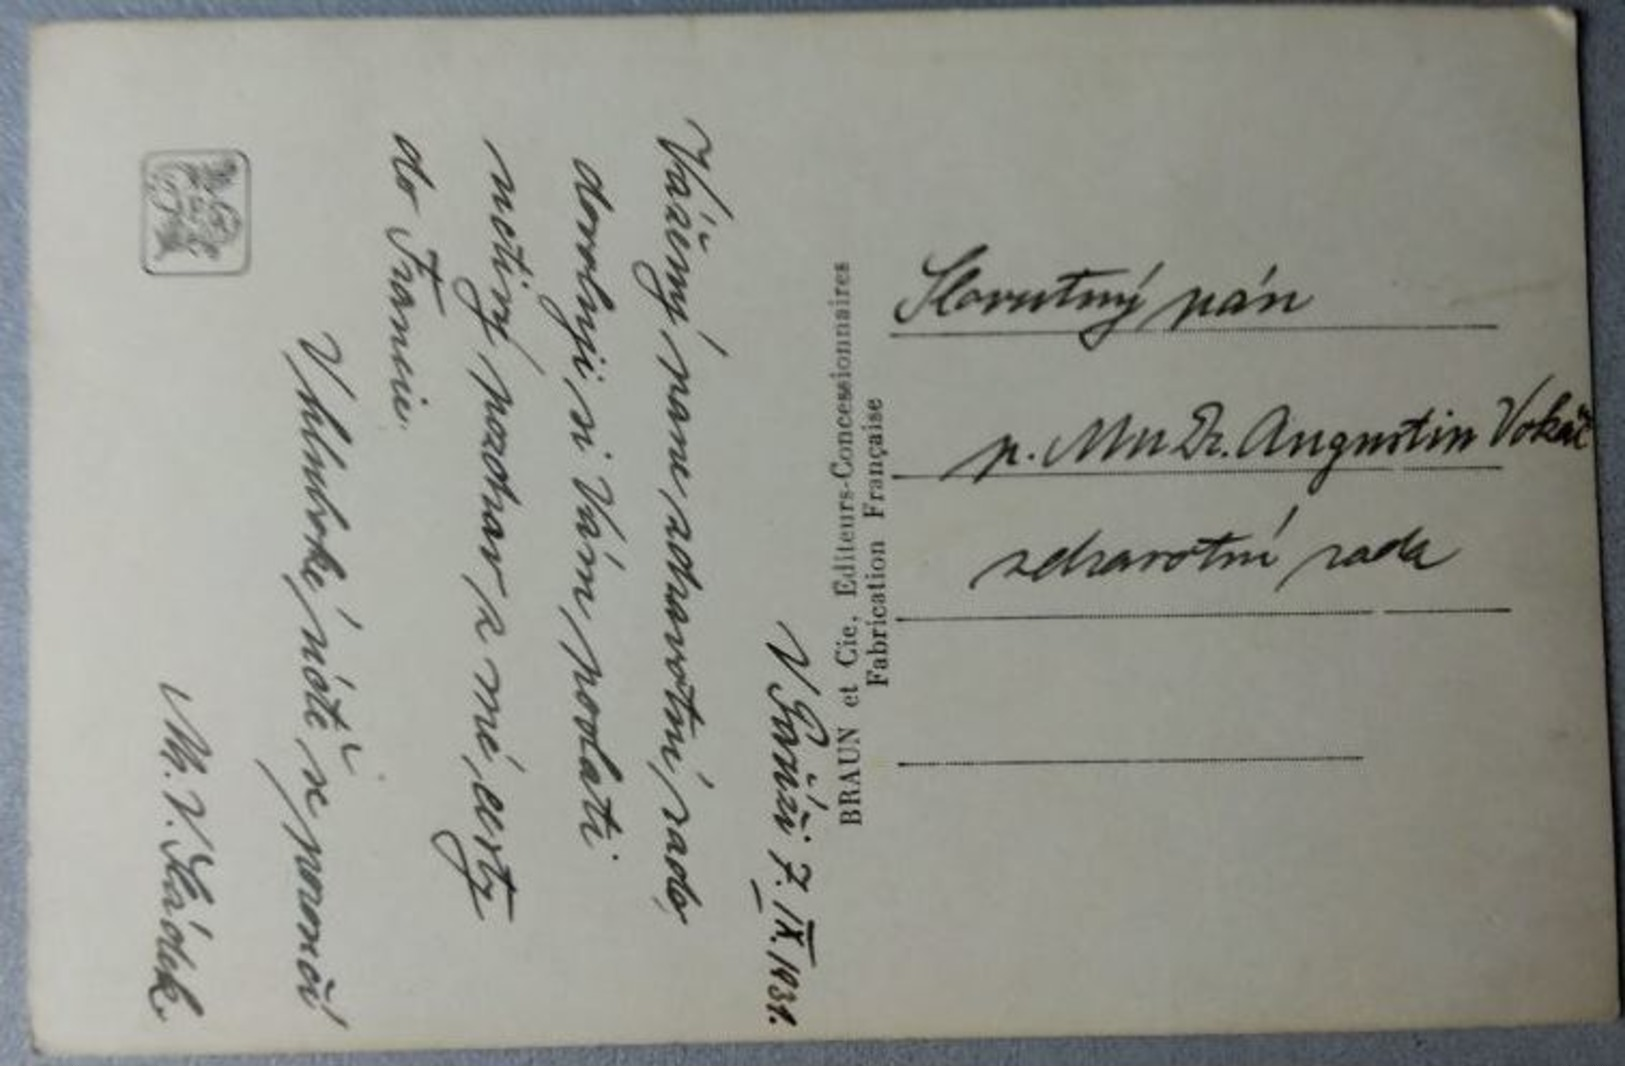 V Paříži 7. IX. 1931.
Vážený pane zdravotní rado,
dovoluji si Vám poslati
uctivý pozdrav z mé cesty
do Francie.
V hluboké úctě se poroučí
M. V. Sládek
BRAUN et Cie, Editeurs-Concessionnaires
Fabrication Française
Slovutný pán
p. MuDr. Augustin Vokáč
zdravotní rada